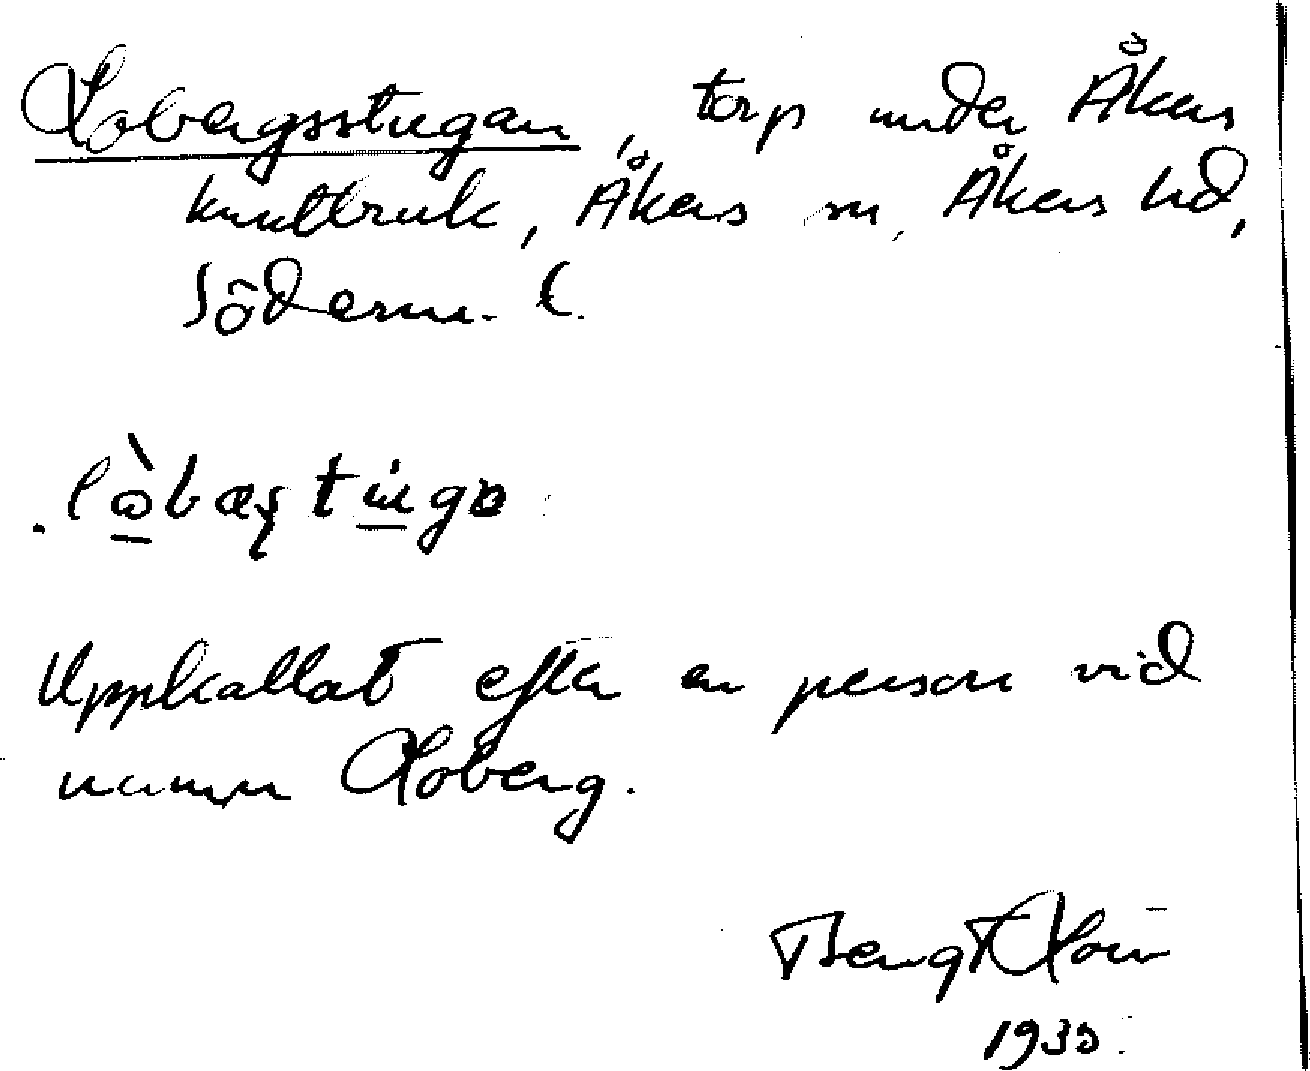 Lobergsstugan, torp under Åkers
krutbruk, Åkers sn, Åkers hd,
Söderm. l.
Uppkallat efter en person vid
namn Loberg.
Bengt
1935.